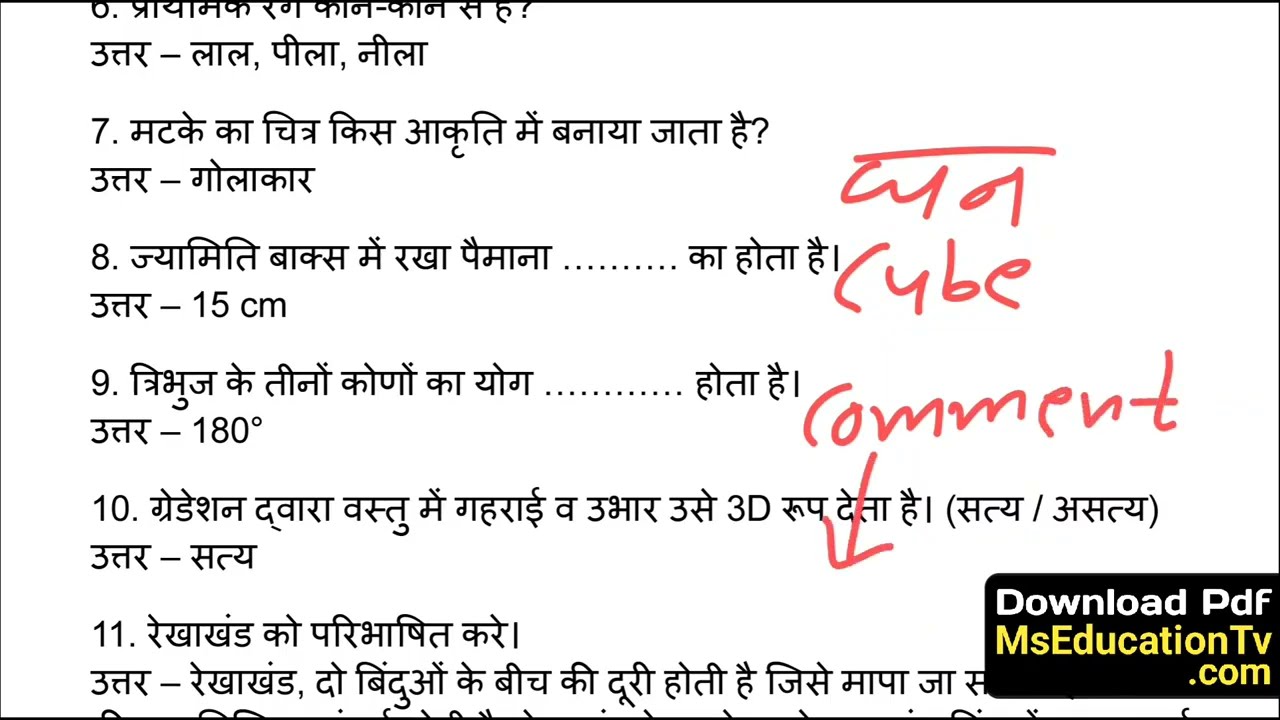 6. प्राथमिक रंग कौन-कौन से है?
उत्तर – लाल, पीला, नीला
7. मटके का चित्र किस आकृति में बनाया जाता है?
उत्तर – गोलाकार
घन
8. ज्यामिति बाक्स में रखा पैमाना ………. का होता है।
cube
उत्तर – 15 cm
9. त्रिभुज के तीनों कोणों का योग ………… होता है।
comment
उत्तर – 180°
10. ग्रेडेशन द्वारा वस्तु में गहराई व उभार उसे 3D रूप देता है। (सत्य / असत्य)
उत्तर – सत्य
11. रेखाखंड को परिभाषित करे।
उत्तर – रेखाखंड, दो बिंदुओं के बीच की दूरी होती है जिसे मापा जा
Download Pdf
MsEducationTv
.com